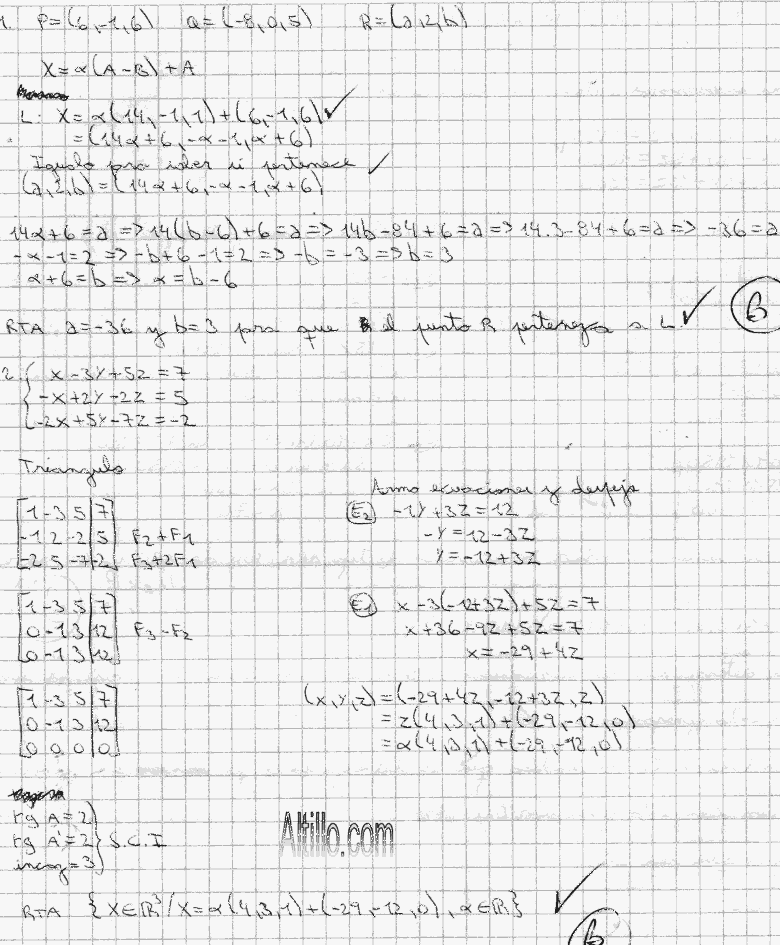 1. P=(6,-1,6) Q=(-8,0,5) R=(a,2,b)
X=α(A-B)+A
L: X=α(14,-1,1)+(6,-1,6) ✓
=(14α+6,-α-1,α+6)
Igualo para saber si pertenece ✓
(a,2,b)=(14α+6,-α-1,α+6)
14α+6=a => 14(b-6)+6=a => 14b-84+6=a => 14.3-84+6=a => -36=a
-α-1=2 => -b+6-1=2 => -b=-3 => b=3
α+6=b => α=b-6
RTA a=-36 y b=3 para que el punto R pertenezca a L. ✓ B
2 { x-3y+5z=7
-x+2y-2z=5
-2x+5y-7z=-2
Triangulo
[1 -3 5 | 7]
[-1 2 -2 | 5] F2+F1
[-2 5 -7 | -2] F3+2F1
[1 -3 5 | 7]
[0 -1 3 | 12] F3-F2
[0 -1 3 | 12]
[1 -3 5 | 7]
[0 -1 3 | 12]
[0 0 0 | 0]
Armo ecuaciones y despejo
E2 -1y+3z=12
-y=12-3z
y=-12+3z
E1 x-3(-12+3z)+5z=7
x+36-9z+5z=7
x=-29+4z
(x,y,z)=(-29+4z,-12+3z,z)
=z(4,3,1)+(-29,-12,0)
=α(4,3,1)+(-29,-12,0)
rg A=2
rg A'=2 } S.C.I
incog=3
Altillo.com
RTA {X∈R³/X=α(4,3,1)+(-29,-12,0), α∈R} ✓
B